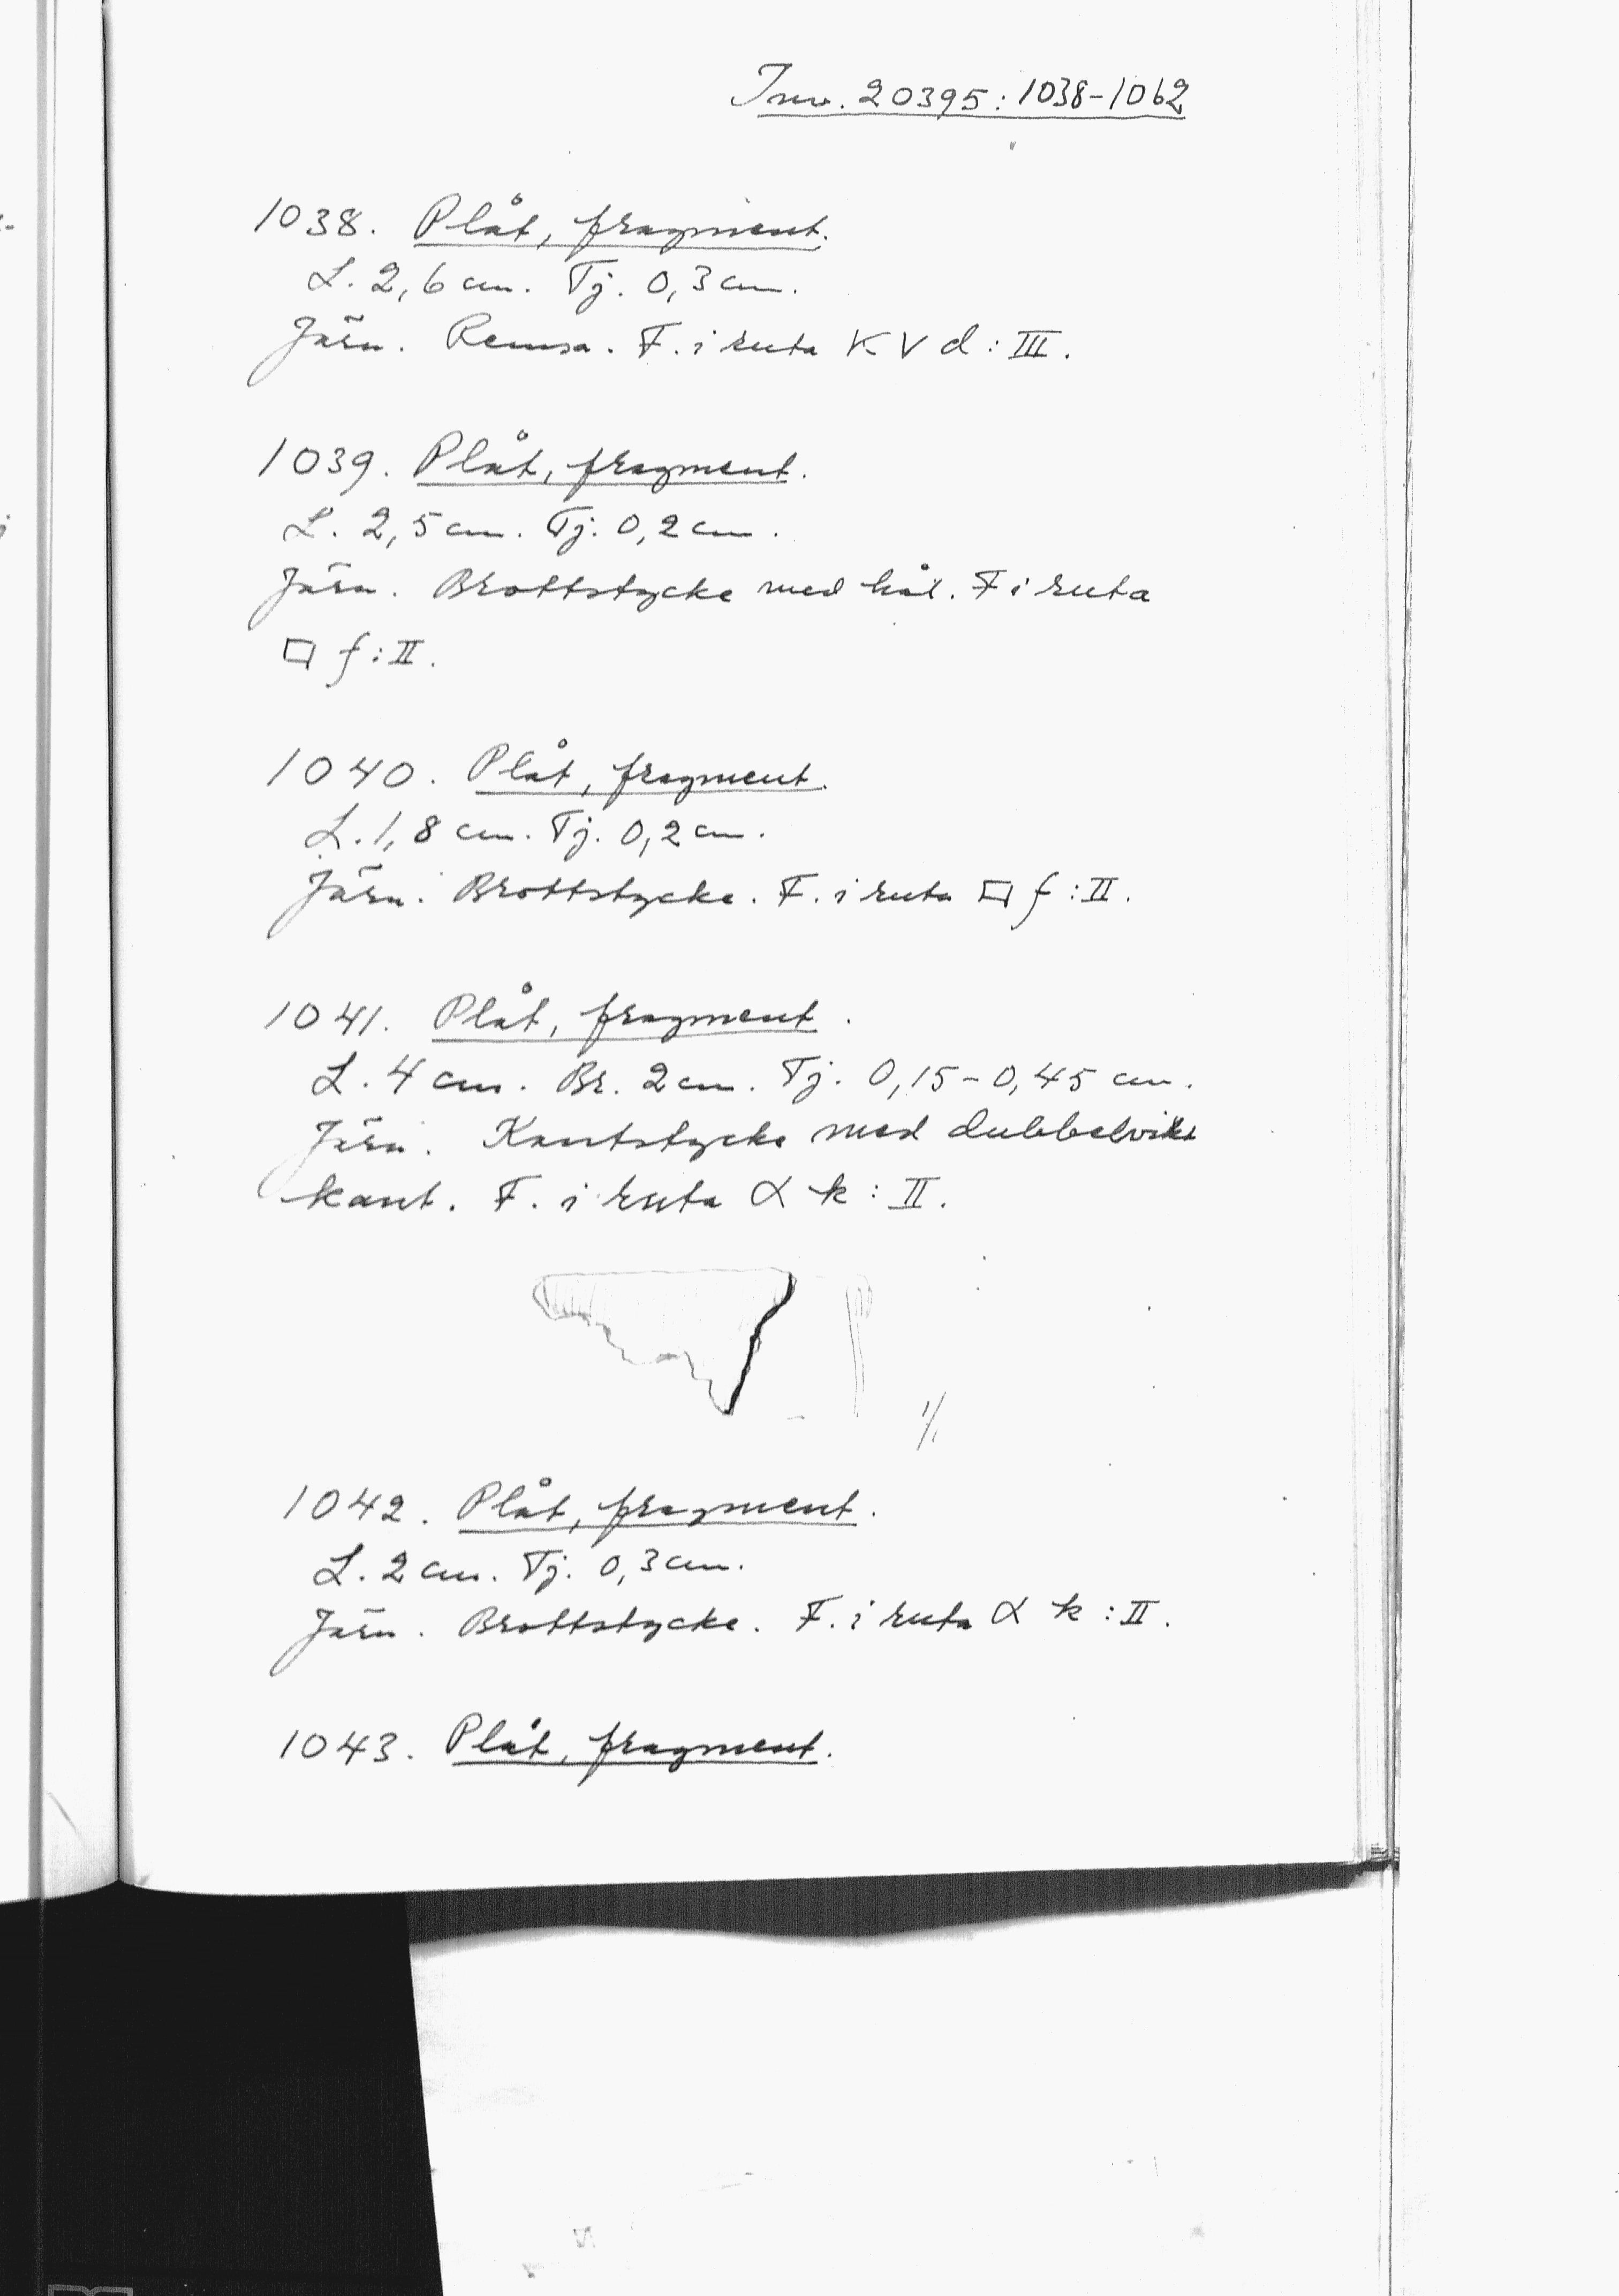 Inv. 20395:1038-1062
1038. Plåt, fragment.
L. 2,6 cm. Tj. 0,3 cm.
Järn. Remsa. F. i ruta K V d : III.
1039. Plåt, fragment.
L. 2,5 cm. Tj. 0,2 cm.
Järn. Brottstycke med hål. F i ruta
□ f : II.
1040. Plåt, fragment.
L. 1,8 cm. Tj. 0,2 cm.
Järn. Brottstycke. F. i ruta □ f : II.
1041. Plåt, fragment.
L. 4 cm. Br. 2 cm. Tj. 0,15-0,45 cm.
Järn. Kantstycke med dubbelvikt
kant. F. i ruta α k : II.
1/1
1042. Plåt, fragment.
L. 2 cm. Tj. 0,3 cm.
Järn. Brottstycke. F. i ruta α k : II.
1043. Plåt, fragment.